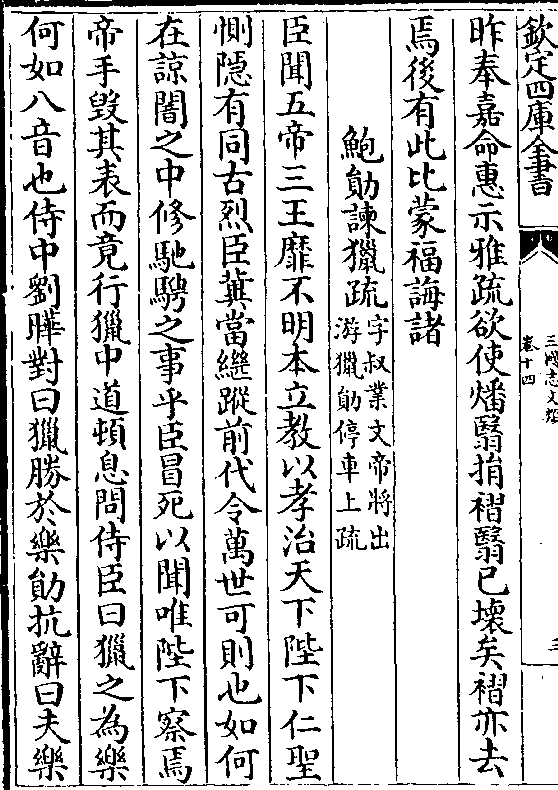 欽定四庫全書
三國志文類
卷十四
三
昨奉嘉命惠示雅疏欲使燔翳捐褶翳已壞矣褶亦去
焉後有此比蒙福誨諸
鮑勛諫獵疏字叔業文帝將出
游獵勛停車上疏
臣聞五帝三王靡不明本立教以孝治天下陛下仁聖
惻隱有同古烈臣冀當繼蹤前代令萬世可則也如何
在諒闇之中修馳騁之事乎臣冒死以聞唯陛下察焉
帝手毀其表而竟行獵中道頓息問侍臣曰獵之為樂
何如八音也侍中劉曄對曰獵勝於樂勛抗辭曰夫樂